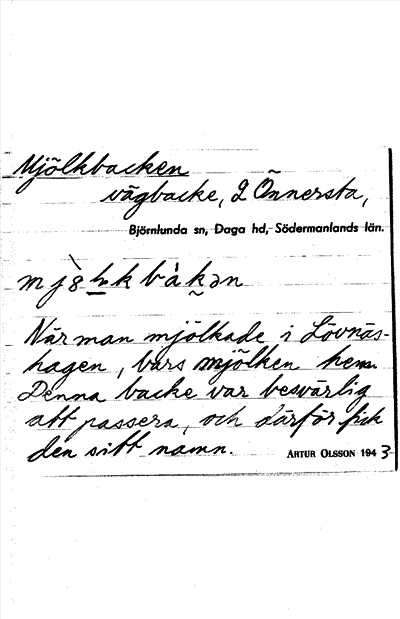 Mjölkbacken
vägbacke, 2 Önnersta,
Björnlunda sn, Daga hd, Södermanlands län.
När man mjölkade i Lövnäs-
hagen, bars mjölken hem.
Denna backe var besvärlig
att passera, och därför fick
den sitt namn.
ARTUR OLSSON 1943